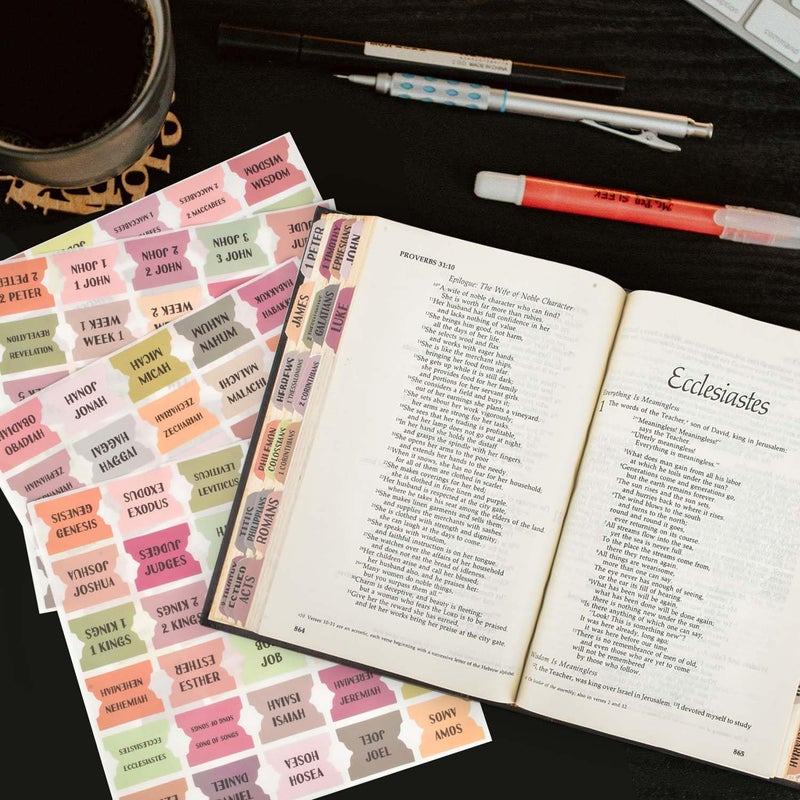 Mr. Pen SLEEK
WISDOM
WISDOM
2 MACCABEES
2 MACCABEES
1 MACCABEES
2 PETER
2 PETER
1 JOHN
1 JOHN
2 JOHN
2 JOHN
3 JOHN
3 JOHN
JUDE
REVELATION
REVELATION
WEEK 1
WEEK 1
WEEK 2
MICAH
MICAH
NAHUM
NAHUM
HABAKKUK
HABAKKUK
OBADIAH
OBADIAH
JONAH
JONAH
HAGGAI
HAGGAI
ZECHARIAH
ZECHARIAH
MALACHI
MALACHI
ZEPHANIAH
GENESIS
GENESIS
EXODUS
EXODUS
LEVITICUS
LEVITICUS
JOSHUA
JOSHUA
JUDGES
JUDGES
1 KINGS
1 KINGS
2 KINGS
2 KINGS
NEHEMIAH
NEHEMIAH
ESTHER
ESTHER
JOB
ECCLESIASTES
ECCLESIASTES
SONG OF SONGS
SONG OF SONGS
ISAIAH
ISAIAH
JEREMIAH
JEREMIAH
DANIEL
DANIEL
HOSEA
HOSEA
JOEL
JOEL
AMOS
AMOS
1 PETER
1 TIMOTHY
EPHESIANS
JOHN
JAMES
GALATIANS
LUKE
HEBREWS
1 THESSALONIANS
2 CORINTHIANS
PHILEMON
COLOSSIANS
1 CORINTHIANS
TITUS
PHILIPPIANS
ROMANS
ESTHER
ACTS
PROVERBS 31:10
Epilogue: The Wife of Noble Character
10A wife of noble character who can find?
She is worth far more than rubies.
11Her husband has full confidence in her
and lacks nothing of value.
12She brings him good, not harm,
all the days of her life.
13She selects wool and flax
and works with eager hands.
14She is like the merchant ships,
bringing her food from afar.
15She gets up while it is still dark;
she provides food for her family
and portions for her servant girls.
16She considers a field and buys it;
out of her earnings she plants a vineyard.
17She sets about her work vigorously;
her arms are strong for her tasks.
18She sees that her trading is profitable,
and her lamp does not go out at night.
19In her hand she holds the distaff
and grasps the spindle with her fingers.
20She opens her arms to the poor
and extends her hands to the needy.
21When it snows, she has no fear for her household;
for all of them are clothed in scarlet.
22She makes coverings for her bed;
she is clothed in fine linen and purple.
23Her husband is respected at the city gate,
where he takes his seat among the elders of the land.
24She makes linen garments and sells them,
and supplies the merchants with sashes.
25She is clothed with strength and dignity;
she can laugh at the days to come.
26She speaks with wisdom,
and faithful instruction is on her tongue.
27She watches over the affairs of her household
and does not eat the bread of idleness.
28Her children arise and call her blessed;
her husband also, and he praises her:
29"Many women do noble things,
but you surpass them all."
30Charm is deceptive, and beauty is fleeting;
but a woman who fears the LORD is to be praised.
31Give her the reward she has earned,
and let her works bring her praise at the city gate.
a10 Verses 10-31 are an acrostic, each verse beginning with a successive letter of the Hebrew alphabet.
864
Ecclesiastes
Everything Is Meaningless
1 The words of the Teacher,a son of David, king in Jerusalem:
2"Meaningless! Meaningless!"
says the Teacher.
"Utterly meaningless!
Everything is meaningless."
3What does man gain from all his labor
at which he toils under the sun?
4Generations come and generations go,
but the earth remains forever.
5The sun rises and the sun sets,
and hurries back to where it rises.
6The wind blows to the south
and turns to the north;
round and round it goes,
ever returning on its course.
7All streams flow into the sea,
yet the sea is never full.
To the place the streams come from,
there they return again.
8All things are wearisome,
more than one can say.
The eye never has enough of seeing,
or the ear its fill of hearing.
9What has been will be again,
what has been done will be done again;
there is nothing new under the sun.
10Is there anything of which one can say,
"Look! This is something new"?
It was here already, long ago;
it was here before our time.
11There is no remembrance of men of old,
and even those who are yet to come
will not be remembered
by those who follow.
Wisdom Is Meaningless
12I, the Teacher, was king over Israel in Jerusalem. 13I devoted myself to study
a1 Or leader of the assembly; also in verses 2 and 12
865